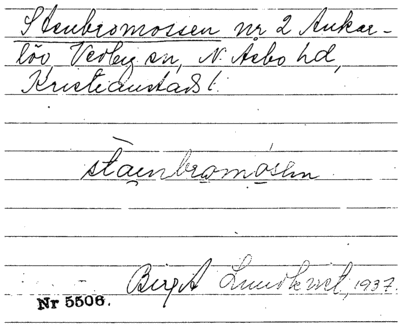 Stenbromossen nr 2 Ankar-
löv, Vedby sn, N. Åsbo hd,
Kristianstads l.
stainbromosen
Birgit Lundkvist, 1937.
Nr 5506.